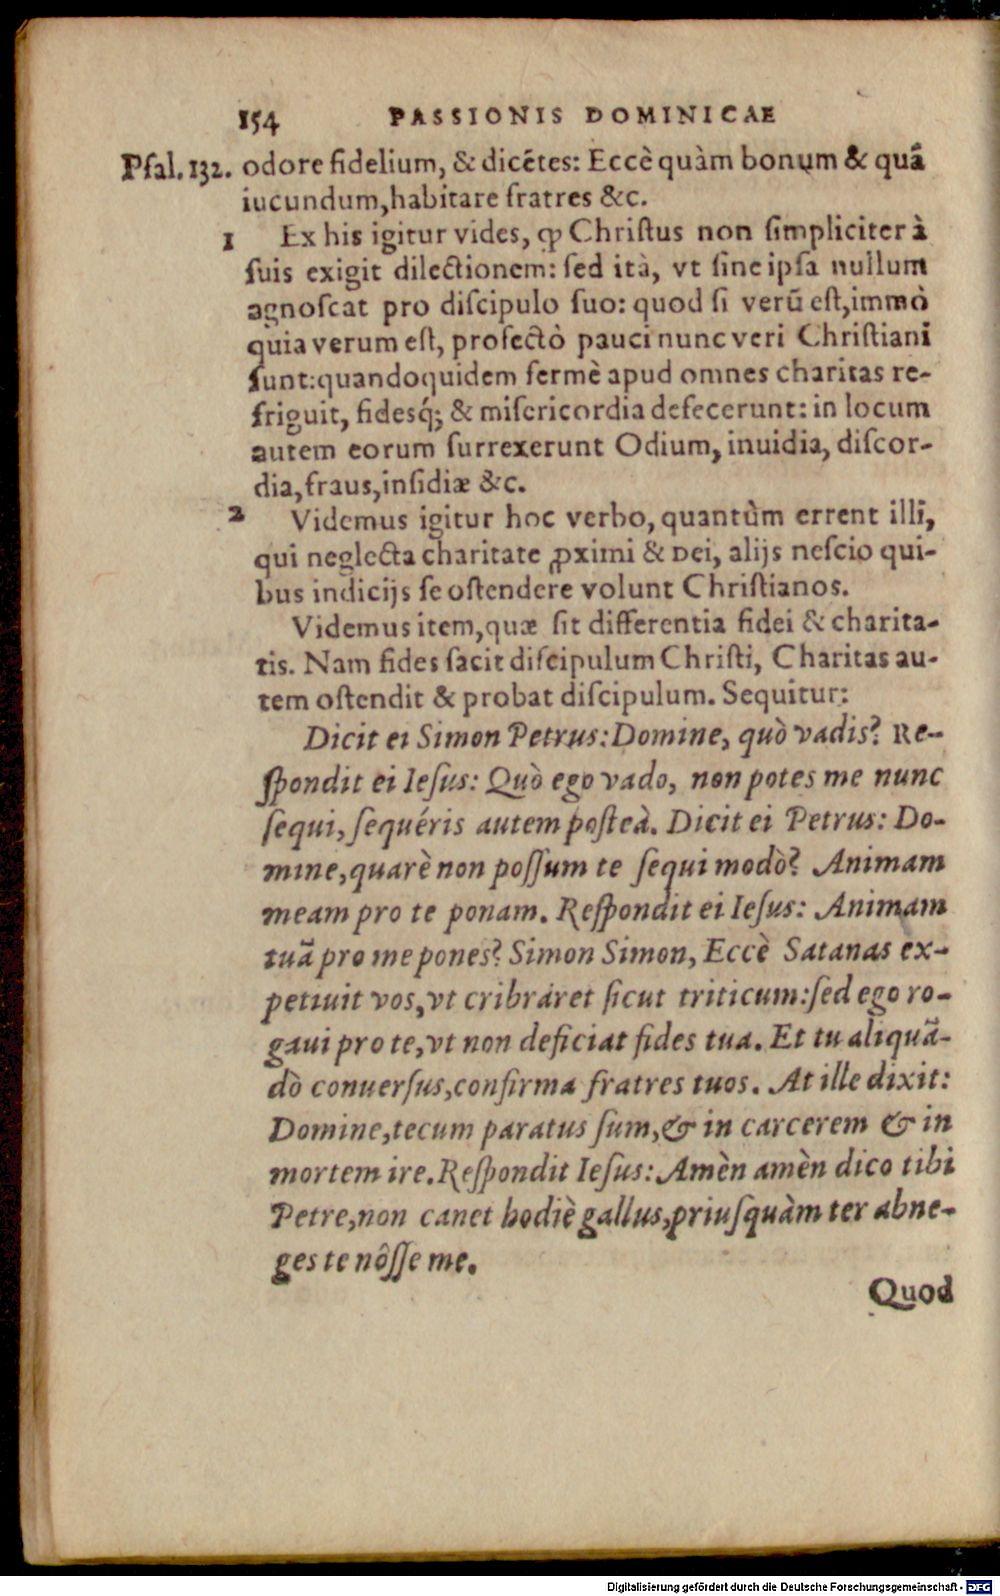 154 PASSIONIS DOMINICAE
Psal.132. odore fidelium, & dicētes: Eccè quàm bonum & quā
iucundum, habitare fratres &c.
1 Ex his igitur vides, ꝙ Christus non simpliciter à
suis exigit dilectionem: sed ità, vt sine ipsa nullum
agnoscat pro discipulo suo: quod si verū est, immò
quia verum est, profectò pauci nunc veri Christiani
sunt: quandoquidem fermè apud omnes charitas re-
friguit, fidesq́; & misericordia defecerunt: in locum
autem eorum surrexerunt Odium, inuidia, discor-
dia, fraus, insidiæ &c.
2 Videmus igitur hoc verbo, quantùm errent illi,
qui neglecta charitate ꝓximi & Dei, alijs nescio qui-
bus indicijs se ostendere volunt Christianos.
Videmus item, quæ sit differentia fidei & charita-
tis. Nam fides facit discipulum Christi, Charitas au-
tem ostendit & probat discipulum. Sequitur:
Dicit ei Simon Petrus: Domine, quò vadis? Re-
spondit ei Iesus: Quò ego vado, non potes me nunc
sequi, sequéris autem posteà. Dicit ei Petrus: Do-
mine, quarè non possum te sequi modò? Animam
meam pro te ponam. Respondit ei Iesus: Animam
tuā pro me pones? Simon Simon, Eccè Satanas ex-
petiuit vos, vt cribráret sicut triticum: sed ego ro-
gaui pro te, vt non deficiat fides tua. Et tu aliquā-
dò conuersus, confirma fratres tuos. At ille dixit:
Domine, tecum paratus sum, & in carcerem & in
mortem ire. Respondit Iesus: Amèn amèn dico tibi
Petre, non canet hodiè gallus, priusquàm ter abne-
ges te nôsse me.
Quod
Digitalisierung gefördert durch die Deutsche Forschungsgemeinschaft - DFG